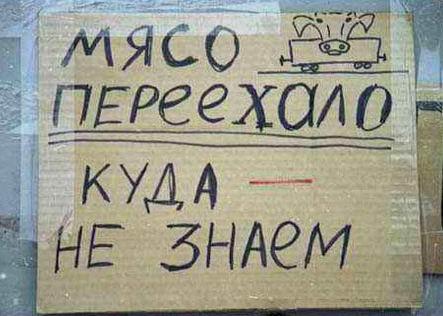 МЯСО
ПЕРЕеХАЛО
КУДА —
НЕ ЗНАеМ